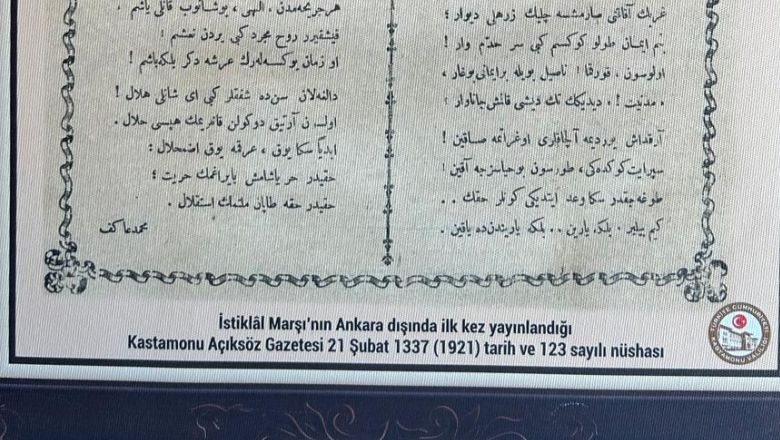 غربك آفاقنى صارمشسه چليك زرهلى ديوار ؛
بنم ايمان طولو كوكسم كبى سر حدم وار !
اولوسون ، قورقما ! ناصيل بويله برايمانى بوغار ،
« مدنيت ! » ديديكك تك ديشى قالمش جاناوار ؟
آرقداش يوردمه آلچاقلرى اوغراتمه صاقين !
سپرايت كوكده كى ، طورسون بوحياسزجه آقين !
طوغه جقدر سكا وعد ايتديكى كونلر حقك . .
كيم بيلير ، بلكه يارين . . بلكه ياريندن ده ياقين .
هرجريحه مدن ، الهى ، بوشانوب قانلى ياشم ،
فيشقيرر روح مجرد كبى يردن نعشم !
او زمان يوكسله رك عرشه دكر بلكه باشم !
دالغه لان سن ده شفقلر كبى اى شانلى هلال !
اولسون آرتيق دوكولن قانلريمك هپسى حلال .
ابدياً سكا يوق ، عرقمه يوق اضمحلال :
حقيدر حر ياشامش بايراغمك حريت ؛
حقيدر حقه طاپان ملتمك استقلال .
محمد عاكف
İstiklâl Marşı'nın Ankara dışında ilk kez yayınlandığı
Kastamonu Açıksöz Gazetesi 21 Şubat 1337 (1921) tarih ve 123 sayılı nüshası
TÜRKİYE CUMHURİYETİ
KASTAMONU VALİLİĞİ